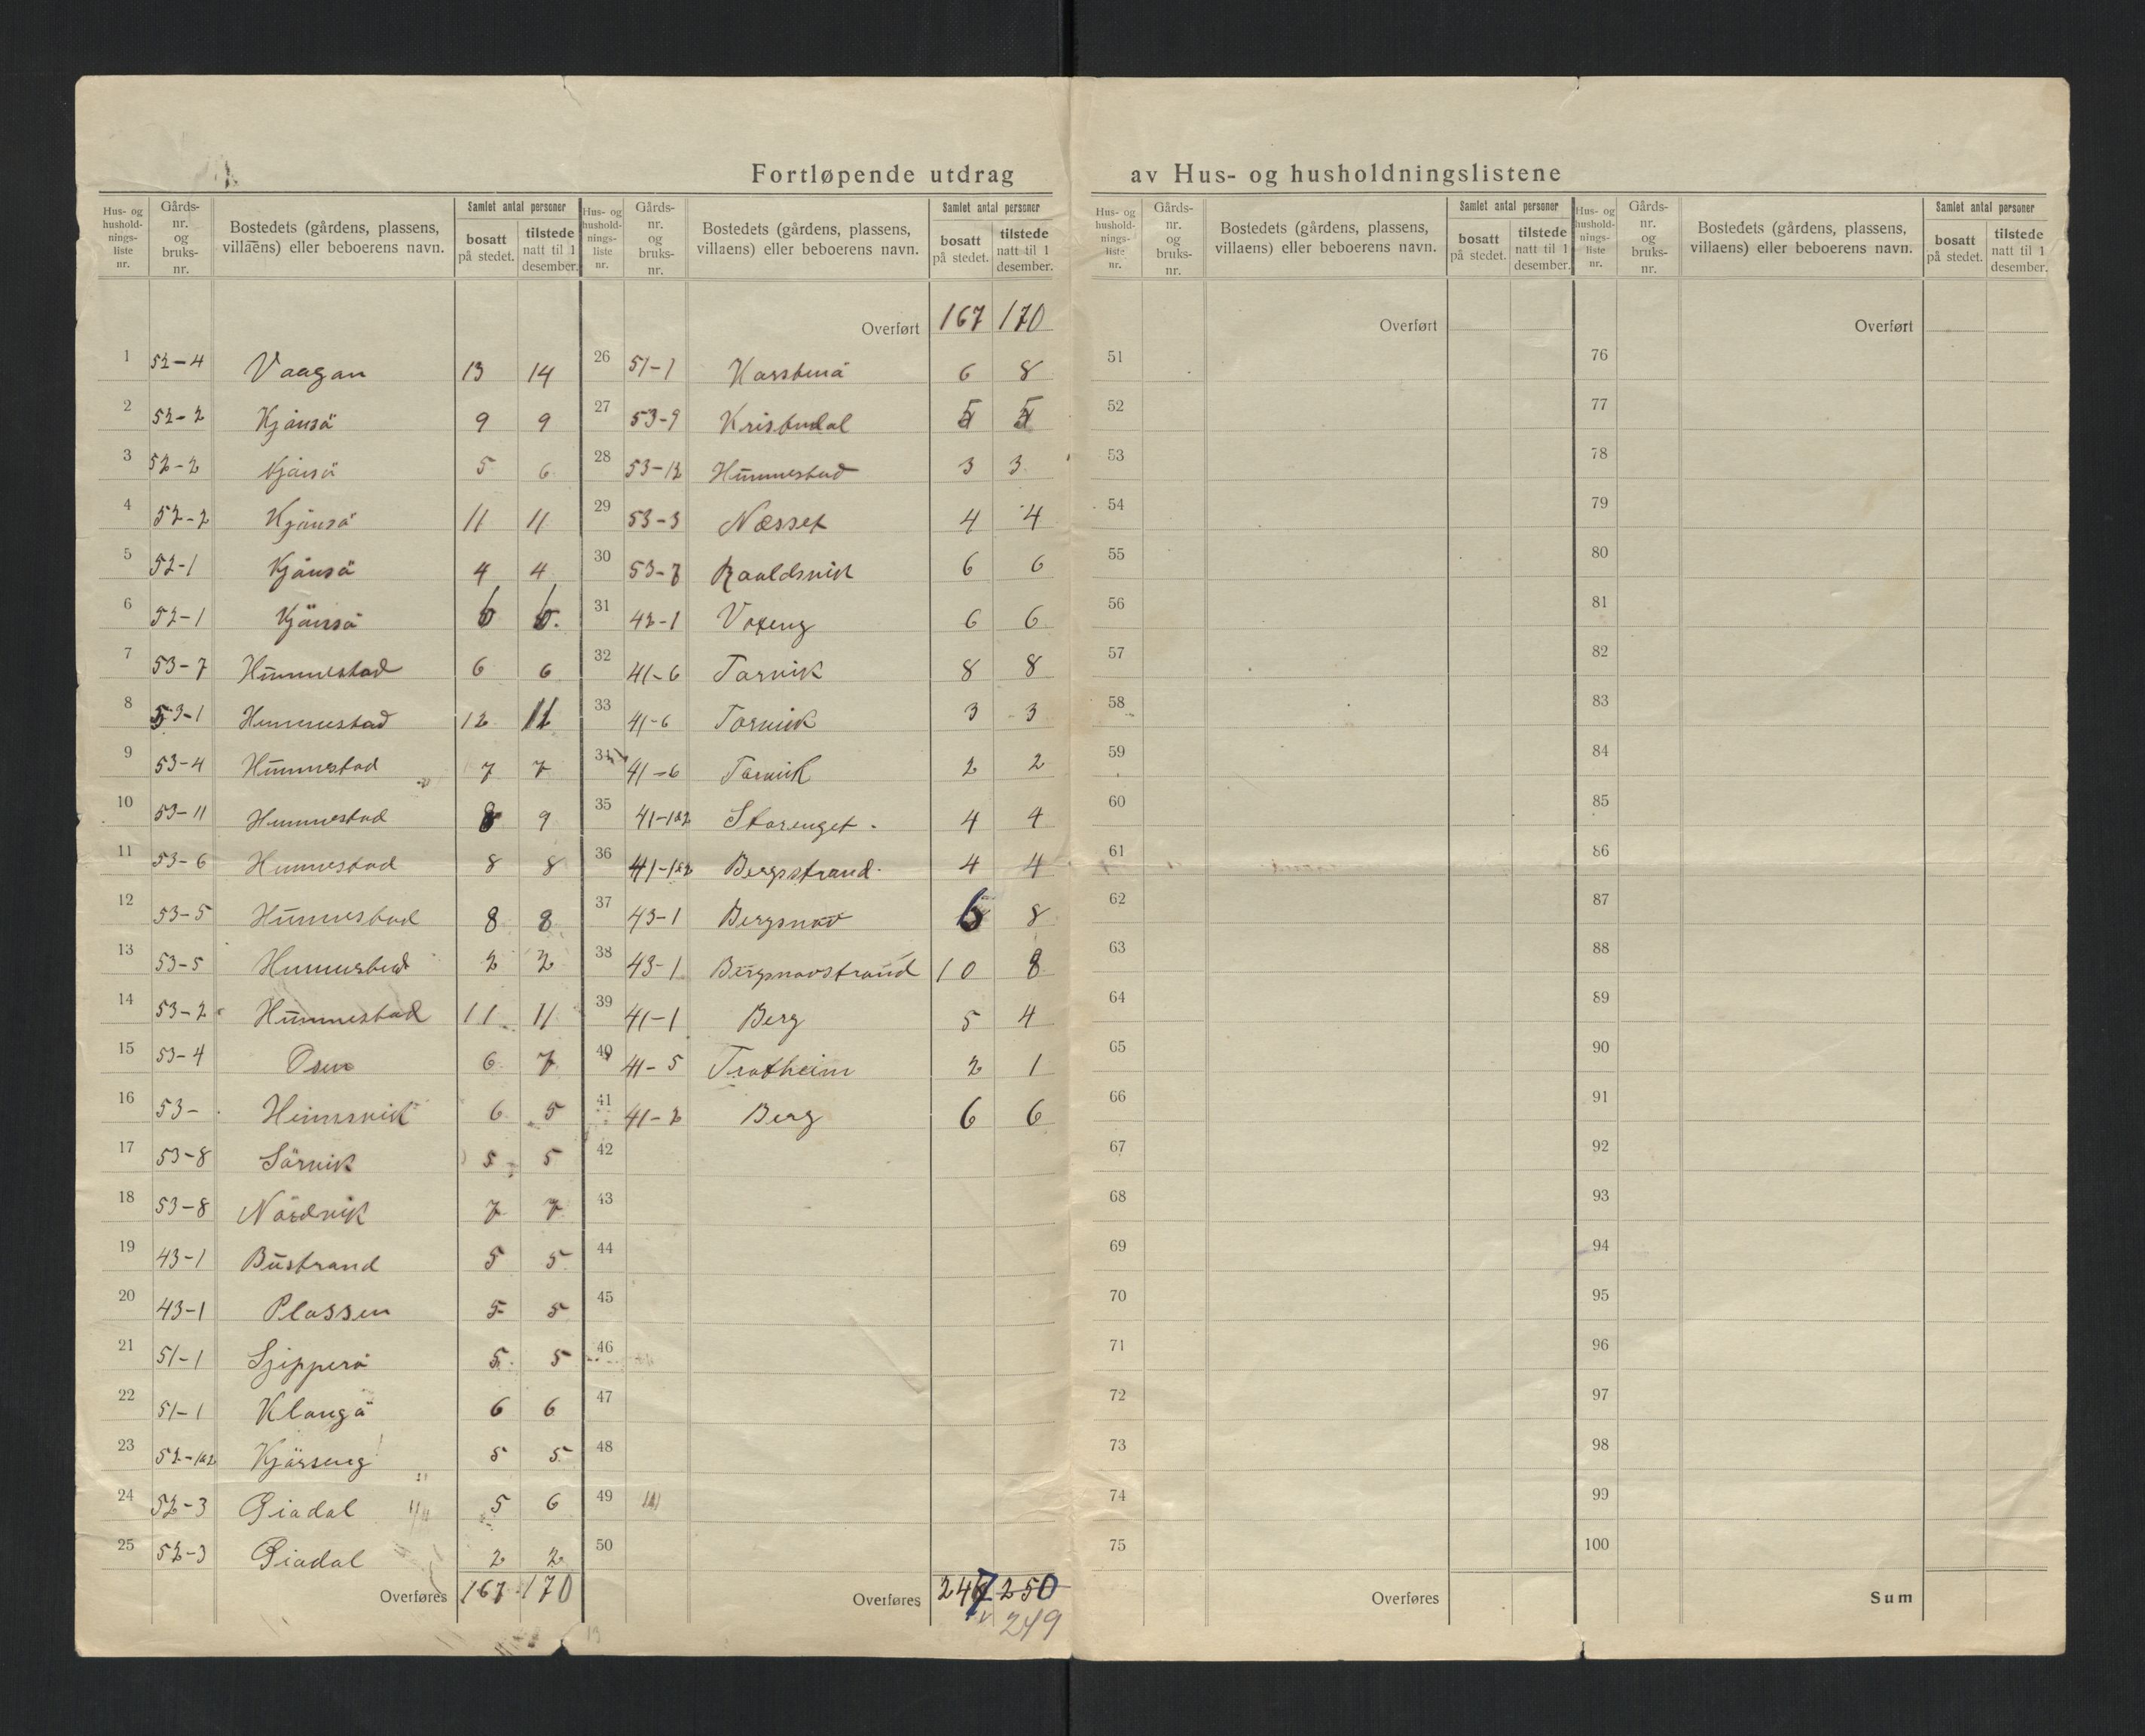 Fortløpende utdrag av Hus- og husholdningslistene
Hus- og hushold-nings-liste nr. Gårds-nr. og bruks-nr. Bostedets (gårdens, plassens, villaens) eller beboerens navn. Samlet antal personer bosatt på stedet. tilstede natt til 1 desember.
1 52-4 Vaagan 13 14
2 52-2 Kjånså 9 9
3 52-2 Kjånså 5 6
4 52-2 Kjånså 11 11
5 52-1 Kjånså 4 4
6 52-1 Kjånså 6 6
7 53-7 Hunnestad 6 6
8 53-1 Hunnestad 12
9 53-4 Hunnestad 7 7
10 53-11 Hunnestad 8 9
11 53-6 Hunnestad 8 8
12 53-5 Hunnestad 8 8
13 53-5 Hunnestad 2 2
14 53-2 Hunnestad 11 11
15 53-4 Osen 6 7
16 53- 6 5
17 53-8 Sørvik 5 5
18 53-8 Nordvik 7 7
19 43-1 Bustrand 5 5
20 43-1 Plassen 5 5
21 51-1 5 5
22 51-1 Klangå 6 6
23 52-1&2 5 5
24 52-3 5 6
25 52-3 2 2
Overføres 167 170
Hus- og hushold-nings-liste nr. Gårds-nr. og bruks-nr. Bostedets (gårdens, plassens, villaens) eller beboerens navn. Samlet antal personer bosatt på stedet. tilstede natt til 1 desember.
Overført 167 170
26 51-1 6 8
27 53-9 Kristendal 5 5
28 53-12 Hunnestad 3 3
29 53-3 Næsset 4 4
30 53-7 6 6
31 42-1 Voxeng 6 6
32 41-6 Torvik 8 8
33 41-6 Torvik 3 3
34 41-6 Torvik 2 2
35 41-1&2 Storenget 4 4
36 41-1&2 Bergsstrand 4 4
37 43-1 Bergsnov 6 8
38 43-1 Bergsnovstrand 10 8
39 41-1 Berg 5 4
40 41-5 Trotheim 2 1
41 41-2 Berg 6 6
42
43
44
45
46
47
48
49
50
Overføres 247 250
249
Hus- og hushold-nings-liste nr. Gårds-nr. og bruks-nr. Bostedets (gårdens, plassens, villaens) eller beboerens navn. Samlet antal personer bosatt på stedet. tilstede natt til 1 desember.
Overført
51
52
53
54
55
56
57
58
59
60
61
62
63
64
65
66
67
68
69
70
71
72
73
74
75
Overføres
Hus- og hushold-nings-liste nr. Gårds-nr. og bruks-nr. Bostedets (gårdens, plassens, villaens) eller beboerens navn. Samlet antal personer bosatt på stedet. tilstede natt til 1 desember.
Overført
76
77
78
79
80
81
82
83
84
85
86
87
88
89
90
91
92
93
94
95
96
97
98
99
100
Sum